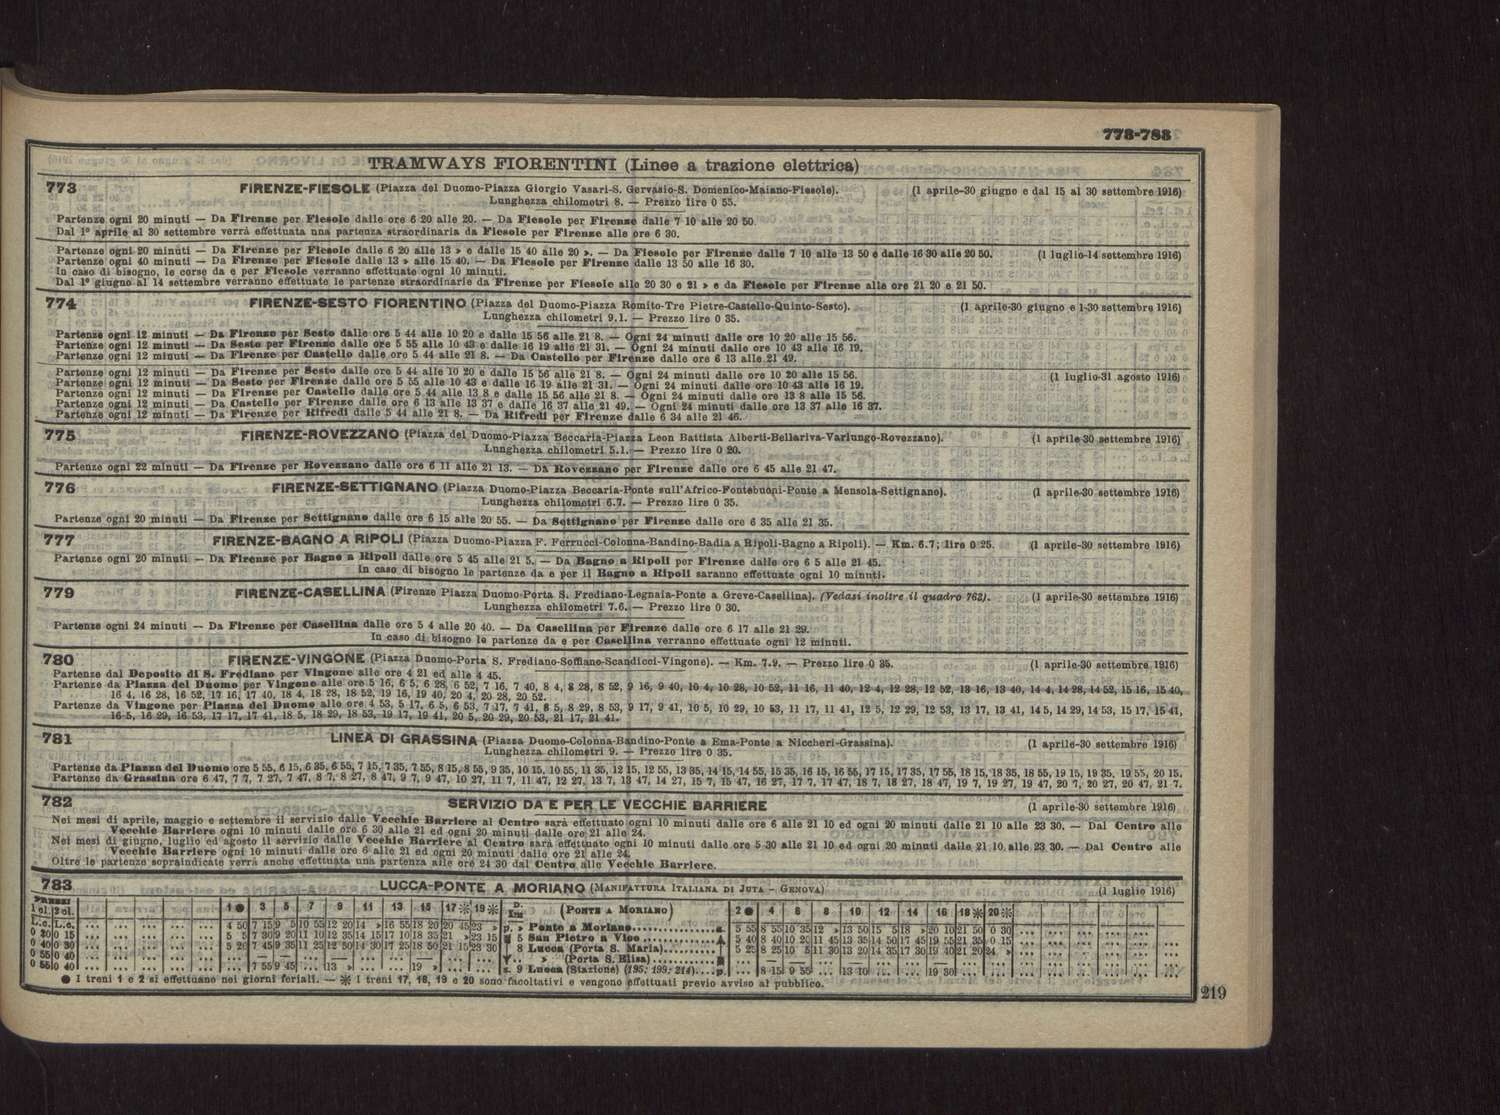 773-783
TRAMWAYS FIORENTINI (Linee a trazione elettrica)
773 FIRENZE-FIESOLE (Piazza del Duomo-Piazza Giorgio Vasari-S. Gervasio-S. Domenico-Maiano-Fiesole). (1 aprile-30 giugno e dal 15 al 30 settembre 1916)
Lunghezza chilometri 8. — Prezzo lire 0 55.
Partenze ogni 20 minuti — Da Firenze per Fiesole dalle ore 6 20 alle 20. — Da Fiesole per Firenze dalle 7 10 alle 20 50
Dal 1º aprile al 30 settembre verrà effettuata una partenza straordinaria da Fiesole per Firenze alle ore 6 30.
Partenze ogni 20 minuti — Da Firenze per Fiesole dalle 6 20 alle 13 » e dalle 15 40 alle 20 ». — Da Fiesole per Firenze dalle 7 10 alle 13 50 e dalle 16 30 alle 20 50. (1 luglio-14 settembre 1916)
Partenze ogni 40 minuti — Da Firenze per Fiesole dalle 13 » alle 15 40. — Da Fiesole per Firenze dalle 13 50 alle 16 30.
In caso di bisogno, le corse da e per Fiesole verranno effettuate ogni 10 minuti.
Dal 1º giugno al 14 settembre verranno effettuate le partenze straordinarie da Firenze per Fiesole alle 20 30 e 21 » e da Fiesole per Firenze alle ore 21 20 e 21 50.
774 FIRENZE-SESTO FIORENTINO (Piazza del Duomo-Piazza Romito-Tre Pietre-Castello-Quinto-Sesto). (1 aprile-30 giugno e 1-30 settembre 1916)
Lunghezza chilometri 9.1. — Prezzo lire 0 35.
Partenze ogni 12 minuti — Da Firenze per Sesto dalle ore 5 44 alle 10 20 e dalle 15 56 alle 21 8. — Ogni 24 minuti dalle ore 10 20 alle 15 56.
Partenze ogni 12 minuti — Da Sesto per Firenze dalle ore 5 55 alle 10 43 e dalle 16 19 alle 21 31. — Ogni 24 minuti dalle ore 10 43 alle 16 19.
Partenze ogni 12 minuti — Da Firenze per Castello dalle ore 5 44 alle 21 8. — Da Castello per Firenze dalle ore 6 13 alle 21 49.
Partenze ogni 12 minuti — Da Firenze per Sesto dalle ore 5 44 alle 10 20 e dalle 15 56 alle 21 8. — Ogni 24 minuti dalle ore 10 20 alle 15 56. (1 luglio-31 agosto 1916)
Partenze ogni 12 minuti — Da Sesto per Firenze dalle ore 5 55 alle 10 43 e dalle 16 19 alle 21 31. — Ogni 24 minuti dalle ore 10 43 alle 16 19.
Partenze ogni 12 minuti — Da Firenze per Castello dalle ore 5 44 alle 13 8 e dalle 15 56 alle 21 8. — Ogni 24 minuti dalle ore 13 8 alle 15 56.
Partenze ogni 12 minuti — Da Castello per Firenze dalle ore 6 13 alle 13 37 e dalle 16 37 alle 21 49. — Ogni 24 minuti dalle ore 13 37 alle 16 37.
Partenze ogni 12 minuti — Da Firenze per Rifredi dalle 5 44 alle 21 8. — Da Rifredi per Firenze dalle 6 34 alle 21 46.
775 FIRENZE-ROVEZZANO (Piazza del Duomo-Piazza Beccaria-Piazza Leon Battista Alberti-Bellariva-Varlungo-Rovezzano). (1 aprile-30 settembre 1916)
Lunghezza chilometri 5.1. — Prezzo lire 0 20.
Partenze ogni 22 minuti — Da Firenze per Rovezzano dalle ore 6 11 alle 21 13. — Da Rovezzano per Firenze dalle ore 6 45 alle 21 47.
776 FIRENZE-SETTIGNANO (Piazza Duomo-Piazza Beccaria-Ponte sull'Africo-Fontebuoni-Ponte a Mensola-Settignano). (1 aprile-30 settembre 1916)
Lunghezza chilometri 6.7. — Prezzo lire 0 35.
Partenze ogni 20 minuti — Da Firenze per Settignano dalle ore 6 15 alle 20 55. — Da Settignano per Firenze dalle ore 6 35 alle 21 35.
777 FIRENZE-BAGNO A RIPOLI (Piazza Duomo-Piazza F. Ferrucci-Colonna-Bandino-Badia a Ripoli-Bagno a Ripoli). — Km. 6.7; lire 0 25. (1 aprile-30 settembre 1916)
Partenze ogni 20 minuti — Da Firenze per Bagno a Ripoli dalle ore 5 45 alle 21 5. — Da Bagno a Ripoli per Firenze dalle ore 6 5 alle 21 45.
In caso di bisogno le partenze da e per il Bagno a Ripoli saranno effettuate ogni 10 minuti.
779 FIRENZE-CASELLINA (Firenze Piazza Duomo-Porta S. Frediano-Legnaia-Ponte a Greve-Casellina). (Vedasi inoltre il quadro 762). (1 aprile-30 settembre 1916)
Lunghezza chilometri 7.6. — Prezzo lire 0 30.
Partenze ogni 24 minuti — Da Firenze per Casellina dalle ore 5 4 alle 20 40. — Da Casellina per Firenze dalle ore 6 17 alle 21 29.
In caso di bisogno le partenze da e per Casellina verranno effettuate ogni 12 minuti.
780 FIRENZE-VINGONE (Piazza Duomo-Porta S. Frediano-Soffiano-Scandicci-Vingone). — Km. 7.9. — Prezzo lire 0 35. (1 aprile-30 settembre 1916)
Partenze dal Deposito di S. Frediano per Vingone alle ore 4 21 ed alle 4 45.
Partenze da Piazza del Duomo per Vingone alle ore 5 16, 6 5, 6 28, 6 52, 7 16, 7 40, 8 4, 8 28, 8 52, 9 16, 9 40, 10 4, 10 28, 10 52, 11 16, 11 40, 12 4, 12 28, 12 52, 13 16, 13 40, 14 4, 14 28, 14 52, 15 16, 15 40,
16 4, 16 28, 16 52, 17 16, 17 40, 18 4, 18 28, 18 52, 19 16, 19 40, 20 4, 20 28, 20 52.
Partenze da Vingone per Piazza del Duomo alle ore 4 53, 5 17, 6 5, 6 53, 7 17, 7 41, 8 5, 8 29, 8 53, 9 17, 9 41, 10 5, 10 29, 10 53, 11 17, 11 41, 12 5, 12 29, 12 53, 13 17, 13 41, 14 5, 14 29, 14 53, 15 17, 15 41,
16 5, 16 29, 16 53, 17 17, 17 41, 18 5, 18 29, 18 53, 19 17, 19 41, 20 5, 20 29, 20 53, 21 17, 21 41.
781 LINEA DI GRASSINA (Piazza Duomo-Colonna-Bandino-Ponte a Ema-Ponte a Niccheri-Grassina). (1 aprile-30 settembre 1916)
Lunghezza chilometri 9. — Prezzo lire 0 35.
Partenze da Piazza del Duomo ore 5 55, 6 15, 6 35, 6 55, 7 15, 7 35, 7 55, 8 15, 8 55, 9 35, 10 15, 10 55, 11 35, 12 15, 12 55, 13 35, 14 15, 14 55, 15 35, 16 15, 16 55, 17 15, 17 35, 17 55, 18 15, 18 35, 18 55, 19 15, 19 35, 19 55, 20 15.
Partenze da Grassina ore 6 47, 7 7, 7 27, 7 47, 8 7, 8 27, 8 47, 9 7, 9 47, 10 27, 11 7, 11 47, 12 27, 13 7, 13 47, 14 27, 15 7, 15 47, 16 27, 17 7, 17 47, 18 7, 18 27, 18 47, 19 7, 19 27, 19 47, 20 7, 20 27, 20 47, 21 7.
782 SERVIZIO DA E PER LE VECCHIE BARRIERE (1 aprile-30 settembre 1916)
Nei mesi di aprile, maggio e settembre il servizio dalle Vecchie Barriere al Centro sarà effettuato ogni 10 minuti dalle ore 6 alle 21 10 ed ogni 20 minuti dalle 21 10 alle 23 30. — Dal Centro alle
Vecchie Barriere ogni 10 minuti dalle ore 6 30 alle 21 ed ogni 20 minuti dalle ore 21 alle 24.
Nei mesi di giugno, luglio ed agosto il servizio dalle Vecchie Barriere al Centro sarà effettuato ogni 10 minuti dalle ore 5 30 alle 21 10 ed ogni 20 minuti dalle 21 10 alle 23 30. — Dal Centro alle
Vecchie Barriere ogni 10 minuti dalle ore 6 alle 21 ed ogni 20 minuti dalle ore 21 alle 24.
Oltre le partenze sopraindicate verrà anche effettuata una partenza alle ore 24 30 dal Centro alle Vecchie Barriere.
783 LUCCA-PONTE A MORIANO (MANIFATTURA ITALIANA DI JUTA – GENOVA) (1 luglio 1916)
PREZZI
1 cl. 2 cl. 1 ● 3 5 7 9 11 13 15 17 ※ 19 ※ D. Km (PONTE A MORIANO) 2 ● 4 6 8 10 12 14 16 18 ※ 20 ※
L. c. L. c. 4 50 7 15 9 5 10 55 12 20 14 » 16 55 18 20 20 45 23 » p. » Ponte a Moriano a. 5 55 8 55 10 35 12 » 13 50 15 5 18 » 20 10 21 50 0 30
0 20 0 15 5 5 7 30 9 20 11 10 12 35 14 15 17 10 18 35 21 » 23 15 5 San Pietro a Vico 5 40 8 40 10 20 11 45 13 35 14 50 17 45 19 55 21 35 0 15
0 40 0 30 5 20 7 45 9 35 11 25 12 50 14 30 17 25 18 50 21 15 23 30 8 Lucca (Porta S. Maria) 5 25 8 25 10 5 11 30 13 20 14 35 17 30 19 40 21 20 24 »
0 55 0 40 » (Porta S. Elisa)
0 55 0 40 7 55 9 45 13 » 19 » a. 9 Lucca (Stazione) (195, 199, 214) p. 8 15 9 55 13 10 19 30
● I treni 1 e 2 si effettuano nei giorni feriali. — ※ I treni 17, 18, 19 e 20 sono facoltativi e vengono effettuati previo avviso al pubblico.
219